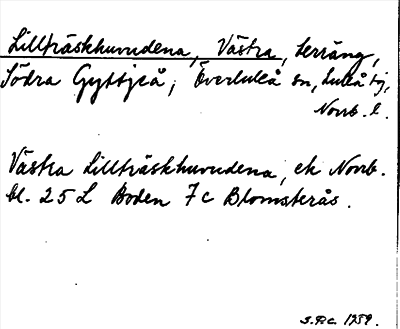 Lillträskhuvudena, Västra, terräng,
Södra Gyttjeå, Överluleå sn, Luleå tj,
Norrb. l.
Västra Lillträskhuvudena, ek Norrb.
bl. 25 L Boden 7 c Blomsterås.
1959.